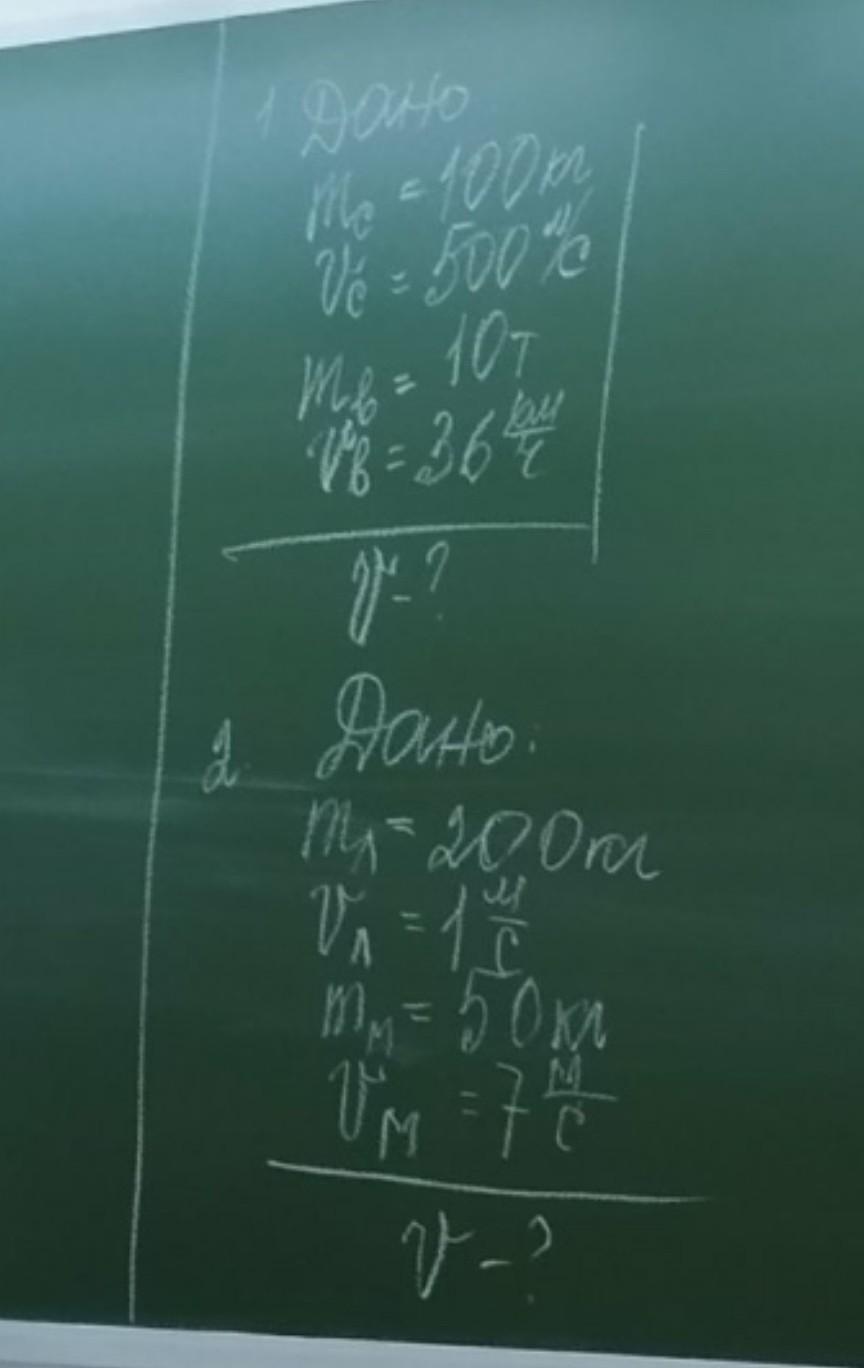 1 Дано
mс = 100 кг
vс = 500 м/с
mв = 10 т
vв = 36 км/ч
v - ?
2. Дано:
mл = 200 кг
vл = 1 м/с
mм = 50 кг
vм = 7 м/с
v - ?